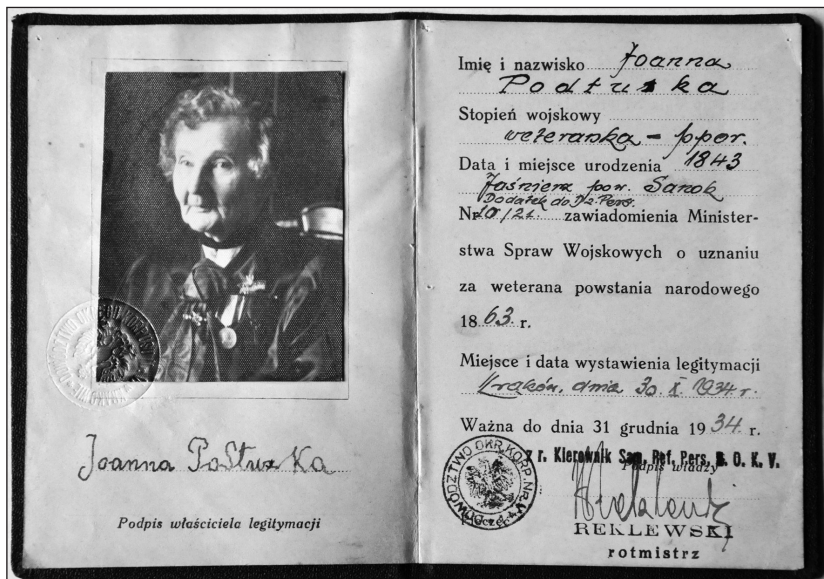 Joanna
Podpis właściciela legitymacji
Imię i nazwisko Joanna
Stopień wojskowy
weteranka - ppor.
Data i miejsce urodzenia 1843
pow. Sanok
Dodatek do Dz. Pers.
Nr 10/21. zawiadomienia Minister-
stwa Spraw Wojskowych o uznaniu
za weterana powstania narodowego
18 63. r.
Miejsce i data wystawienia legitymacji
Kraków, dnia 30. X. 1934 r.
Ważna do dnia 31 grudnia 19 34. r.
z r. Kierownik Sam. Ref. Pers. D. O. K. V.
Podpis władzy
REKLEWSKI
rotmistrz
DOWÓDZTWO OKR. KORP. NR. V